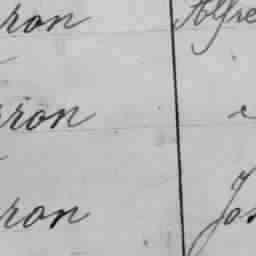 rron Alfre
rron
rron Jos